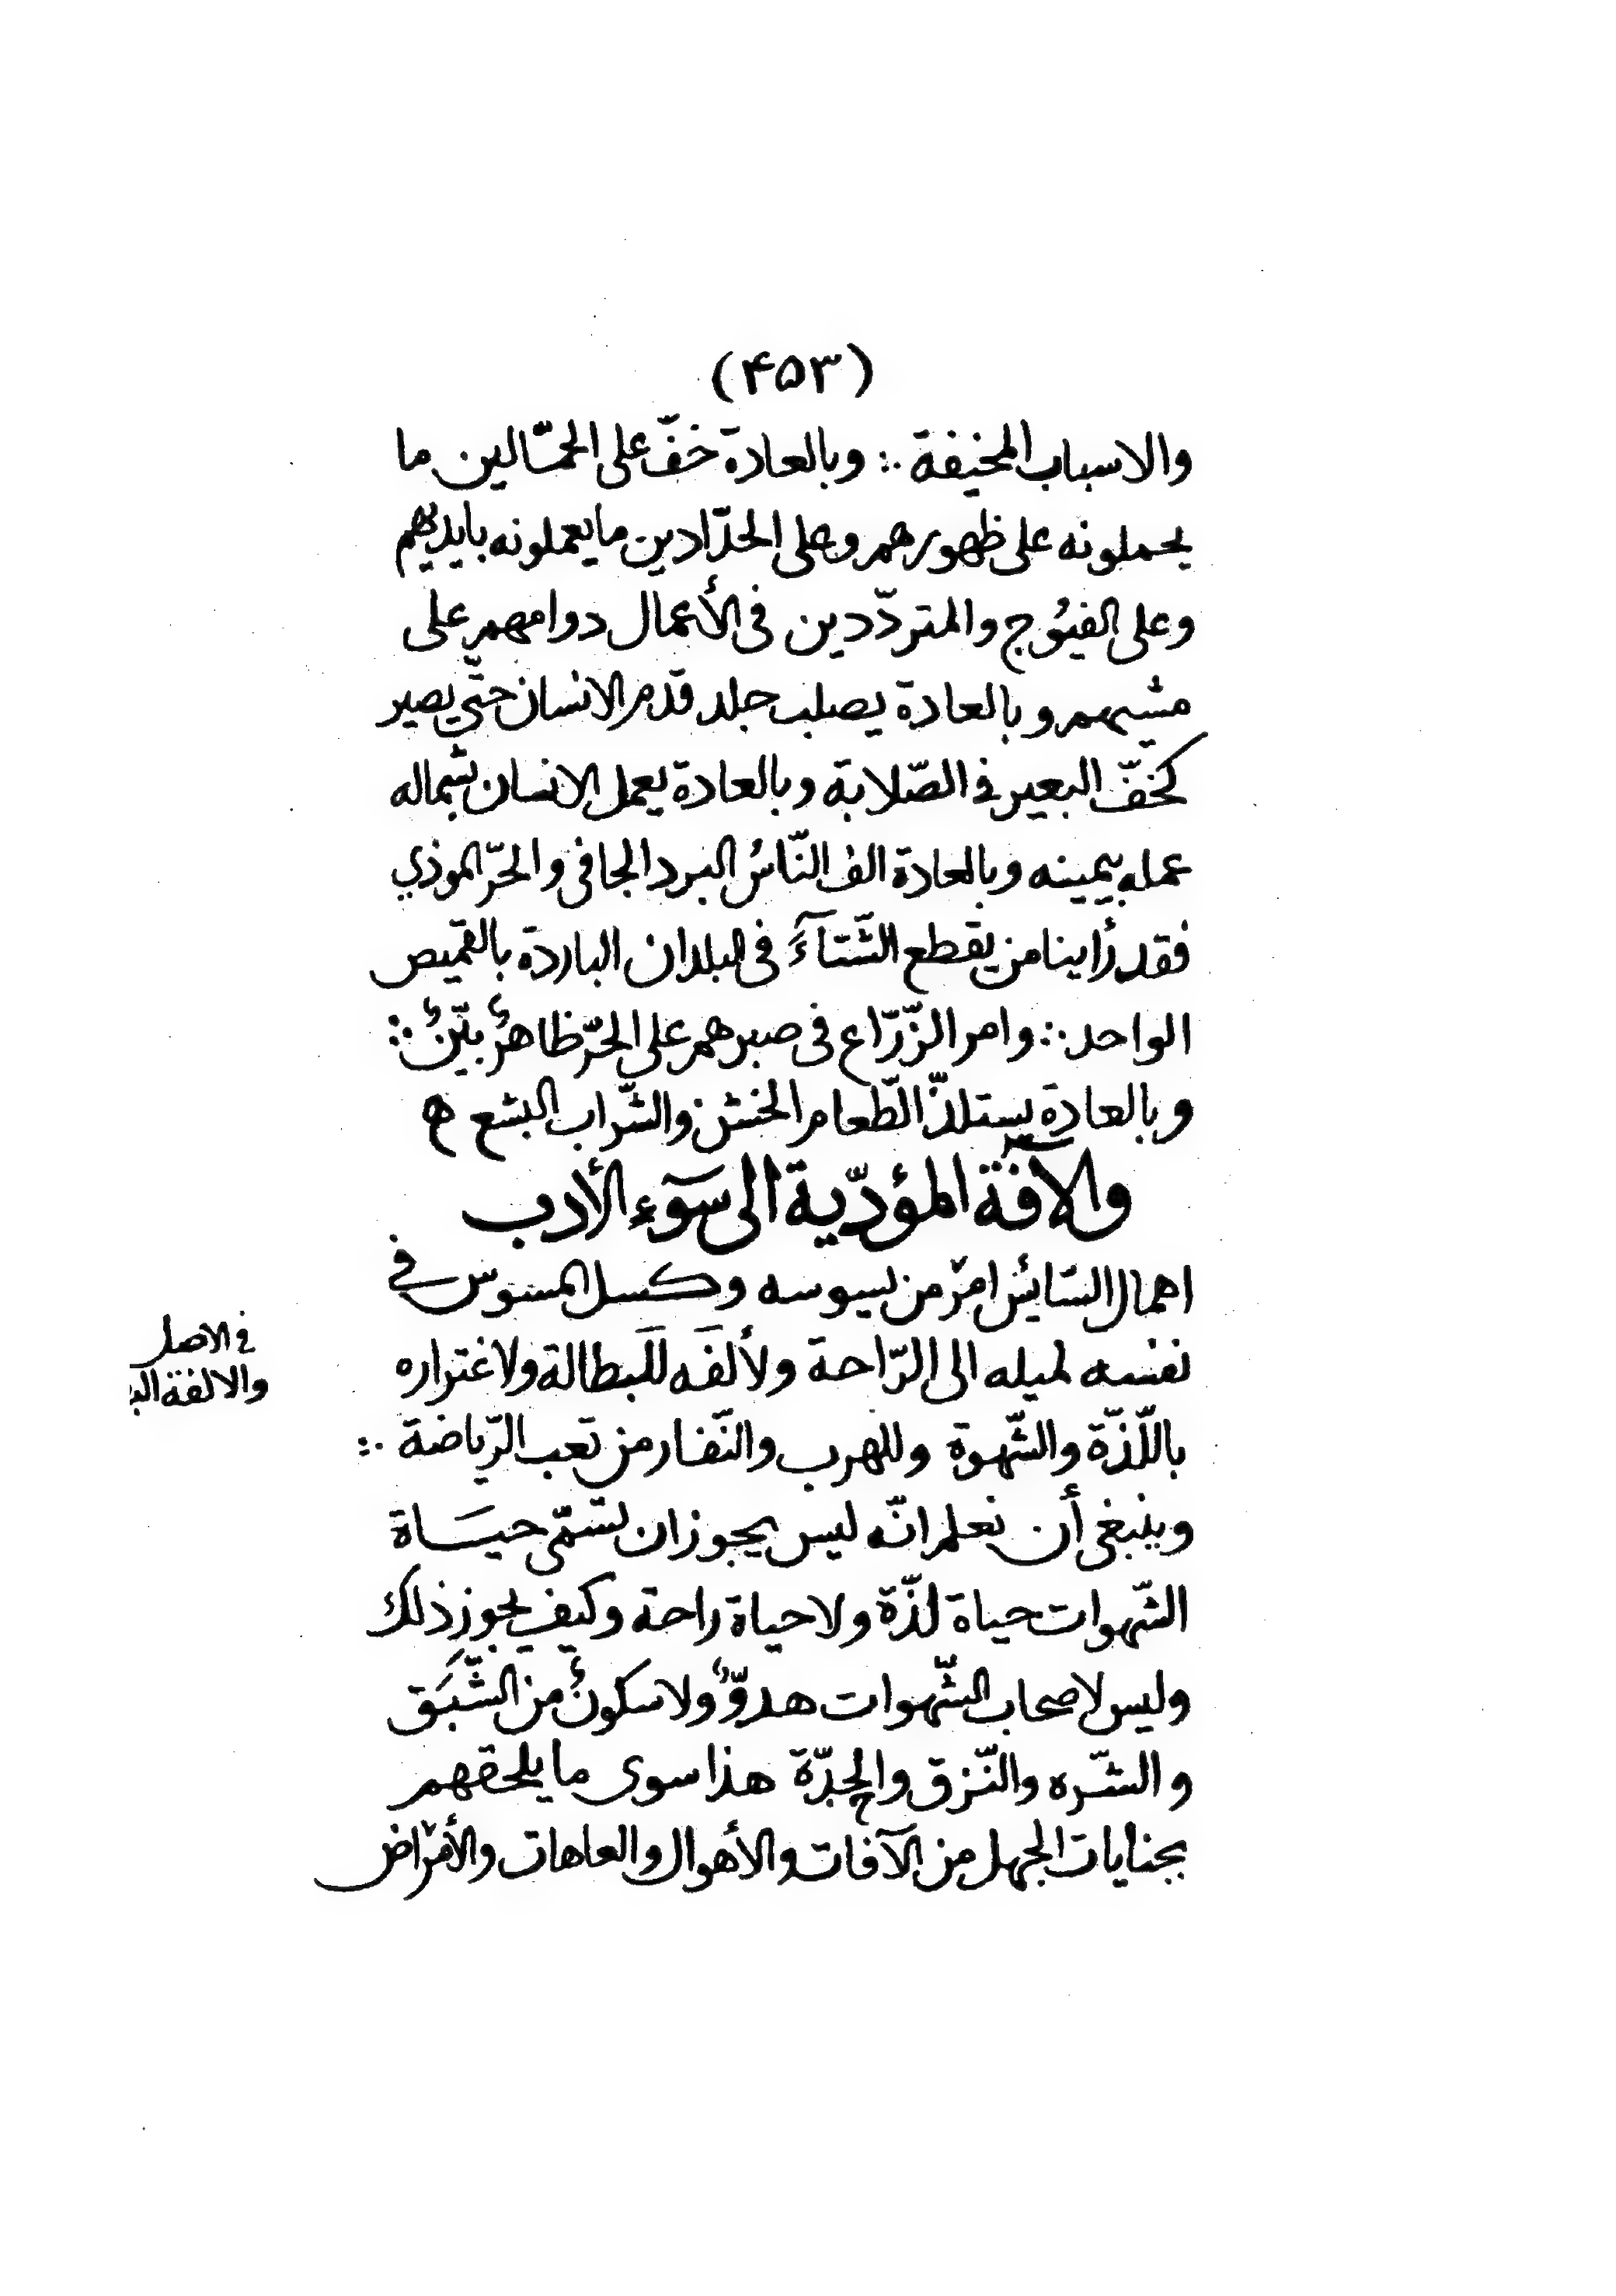 (۴۵۳)
والاسباب المخيفة ∴ وبالعادة خفّ على الحمّالين ما
يحملونه على ظهورهم وعلى الحدّادين ما يعملونه بايديهم
وعلى الفيُوج والمتردّدين فى الأعمال دوامهم على
مشيهم وبالعادة يصلب جلد قدم الانسان حتّي يصير
كخفّ البعير فى الصّلابة وبالعادة يعمل الانسان بشماله
عمله بيمينه وبالعادة الف النّاسُ البرد الجافى والحرّ الموذي
فقد رأينا من يقطع الشّتآءَ فى البلدان الباردة بالقميص
الواحد ∴ وامر الزّرّاع فى صبرهم على الحرّ ظاهرٌ بيّنٌ ∴
وبالعادة يستلذّ الطّعام الخشن والشّراب البشع
والآفة المؤدّية الى سوٓء الأدب
اهمال السّايُس امرَ من يسوسه وكسل المسوس فى
نفسه لميله الى الرّاحة ولألفَه للبطالة ولاغتراره
فى الاصل
والالفة
باللّذّة والشّهوة وللهرب والنّفار من تعب الرّياضة ∴
وينبغى أن نعلم انّه ليس يجوز ان تسمّى حيَاة
الشّهوات حياة لذّة ولا حياة راحة وكيف يجوز ذلك
وليس لاصحاب الشّهوات هدوٌّ ولا سكونٌ من الشّبَق
والشّره والنّزق والحِدّة هذا سوى ما يلحقهم
بجنايات الجهل من الآفات والأهوال والعاهات والأمرَاض